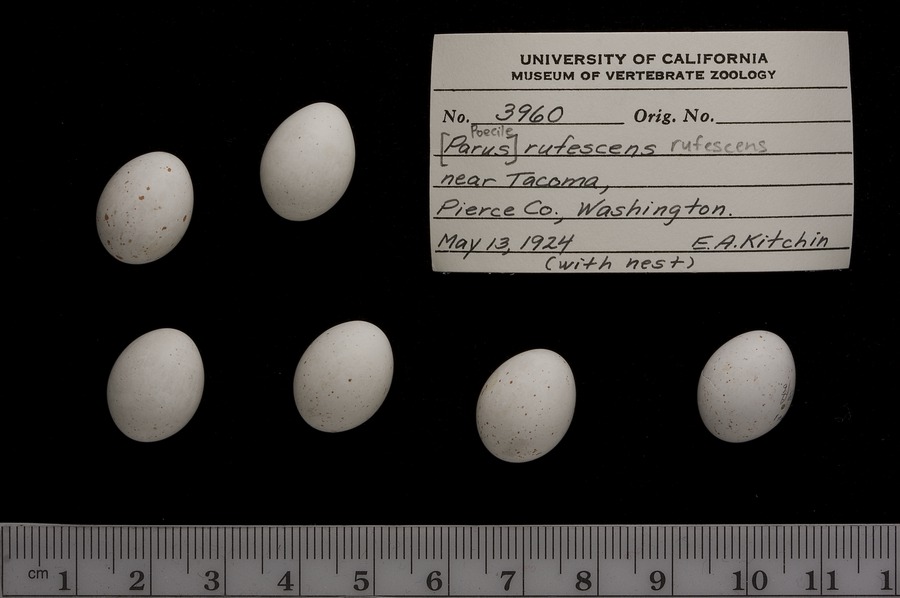 UNIVERSITY OF CALIFORNIA
MUSEUM OF VERTEBRATE ZOOLOGY
No. 3960 Orig. No.
Poecile
[Parus] rufescens rufescens
near Tacoma,
Pierce Co., Washington.
May 13, 1924 E.A. Kitchin
(with nest)
cm 1 2 3 4 5 6 7 8 9 10 11 1